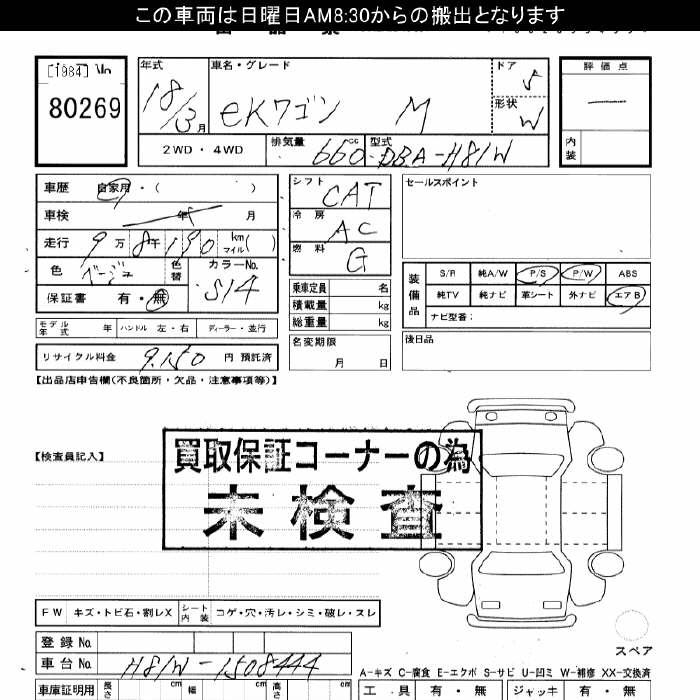 この車両は日曜日AM8:30からの搬出となります
[1984] No
80269
年式 車名・グレード ドア 評価点
18/3月 eKワゴン M 5
形状 W
2WD・4WD 排気量 660cc 型式 DBA-H81W 内装
車歴 自家用・( ) シフト CAT セールスポイント
車検 年 月 冷房 AC
走行 9万8千190 km マイル( ) 燃料 G
色 ベージュ 色替 カラーNo. S14
保証書 有・無
乗車定員 名
積載量 kg
総重量 kg
装備品 S/R 純A/W P/S P/W ABS
純TV 純ナビ 革シート 外ナビ エアB
ナビ型番:
モデル年式 年 ハンドル 左・右 ディーラー・並行
名変期限 月 日
後日品
リサイクル料金 9.150 円 預託済
【出品店申告欄(不良箇所・欠品・注意事項等)】
【検査員記入】
買取保証コーナーの為
未検査
FW キズ・トビ石・割レX シート内装 コゲ・穴・汚レ・シミ・破レ・スレ
登録No
スペア
車台No H81W-1508444
A-キズ C-腐食 E-エクボ S-サビ U-凹ミ W-補修 XX-交換済
車庫証明用 長さ cm 幅 cm 高さ cm
工具 有・無 ジャッキ 有・無